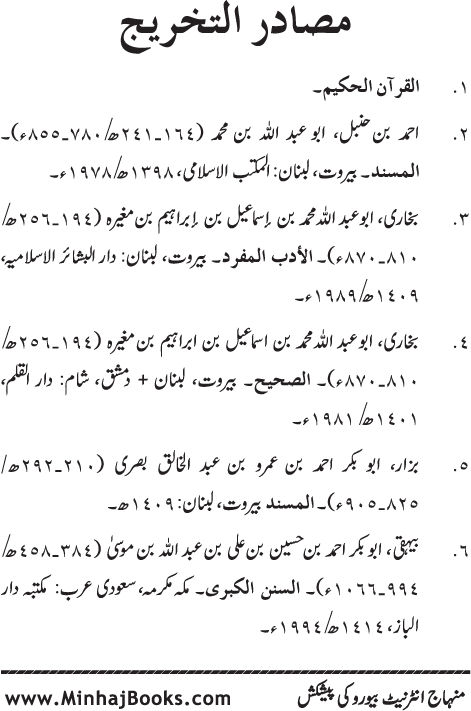 مصادر التخریج
١. القرآن الحکیم۔
٢. احمد بن حنبل، ابو عبد اللہ بن محمد (١٦٤۔٢٤١ھ/٧٨٠۔٨٥٥ء)۔
المسند۔ بیروت، لبنان: المکتب الاسلامی، ١٣٩٨ھ/١٩٧٨ء۔
٣. بخاری، ابو عبد اللہ محمد بن إسماعیل بن إبراہیم بن مغیرہ (١٩٤۔٢٥٦ھ/
٨١٠۔٨٧٠ء)۔ الأدب المفرد۔ بیروت، لبنان: دار البشائر الاسلامیہ،
١٤٠٩ھ/١٩٨٩ء۔
٤. بخاری، ابو عبد اللہ محمد بن اسماعیل بن ابراہیم بن مغیرہ (١٩٤۔٢٥٦ھ/
٨١٠۔٨٧٠ء)۔ الصحیح۔ بیروت، لبنان + دمشق، شام: دار القلم،
١٤٠١ھ/١٩٨١ء۔
٥. بزار، ابو بکر احمد بن عمرو بن عبد الخالق بصری (٢١٠۔٢٩٢ھ/
٨٢٥۔٩٠٥ء)۔ المسند بیروت، لبنان: ١٤٠٩ھ۔
٦. بیہقی، ابو بکر احمد بن حسین بن علی بن عبد اللہ بن موسیٰ (٣٨٤۔٤٥٨ھ/
٩٩٤۔١٠٦٦ء)۔ السنن الکبری۔ مکہ مکرمہ، سعودی عرب: مکتبہ دار
الباز، ١٤١٤ھ/١٩٩٤ء۔
منہاج انٹرنیٹ بیورو کی پیشکش www.MinhajBooks.com